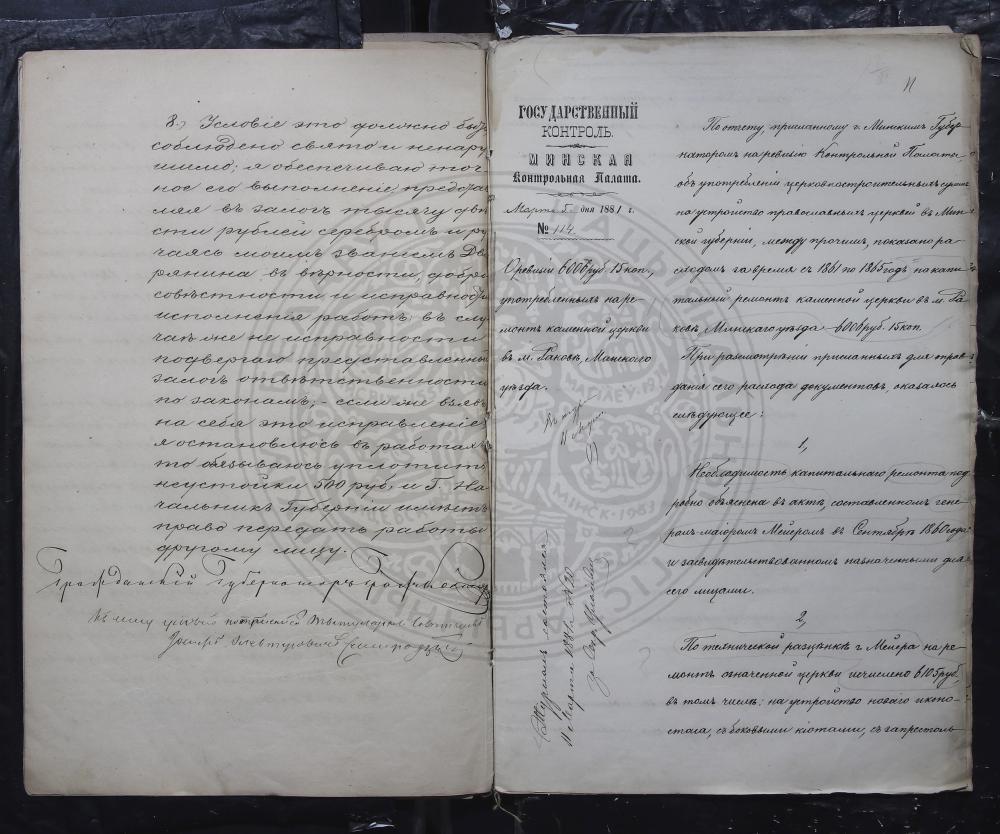 8.) Условіе это должно быть
соблюдено свято и ненару
шимо; я обеспечиваю точ
ное его выполненіе представ
ляя въ залогъ тысячу двѣ
сти рублей серебромъ и ру
чаясь моимъ званіемъ Дво
рянина въ вѣрности, добро
совѣстности и исправности
исполненія работъ; въ слу
чаѣ же не исправности
подвергаю представленный
залогъ отвѣтственности
по законамъ; – если же взявъ
на себя это исправленіе
я остановлюсь въ работахъ
то обязываюсь уплотить
неустойки 500 руб. и Г. На
чальникъ Губерніи имѣетъ
право передать работы
другому лицу.
Гражданскій Губернаторъ Графъ
Къ сему условію Титулярный Совѣтникъ
11
ГОСУДАРСТВЕННЫЙ
КОНТРОЛЬ.
МИНСКАЯ
Контрольная Палата.
Марта 5 дня 1881 г.
№ 114.
О ревизіи 6006 руб. 15 коп.,
употребленныхъ на ре-
монтъ каменной церкви
въ м. Раковѣ, Минскаго
уѣзда.
Журналъ состоялся
11 Марта 1881 г. №
По отчету, присланному г. Минскимъ Губер-
наторомъ на ревизію Контрольной Палаты
объ употребленіи церковностроительныхъ суммъ
на устройство православныхъ церквей въ Мин-
ской губерніи, между прочимъ, показано ра-
сходомъ за время съ 1861 по 1865 годъ на капи-
тальный ремонтъ каменной церкви въ м. Ра-
ковѣ Минскаго уѣзда 6006 руб. 15 коп.
При разсмотрѣніи присланныхъ для оправ-
данія сего расхода документовъ, оказалось
слѣдующее:
1,
Необходимость капитальнаго ремонта под-
робно объяснена въ актѣ, составленномъ гене-
ралъ-маіоромъ Мейеромъ въ Сентябрѣ 1860 года
и засвидѣтельствованномъ назначенными для
сего лицами.
2,
По технической расцѣнкѣ г. Мейера на ре-
монтъ означенной церкви исчислено 6105 руб.,
въ томъ числѣ: на устройство новаго иконо-
стаса, съ боковыми кіотами, съ запрестоль-
МІНСК • 1983